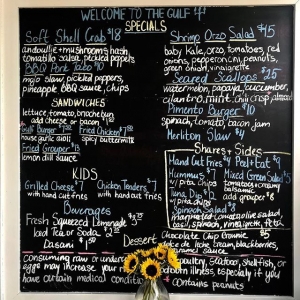 WELCOME TO THE GULF
SPECIALS
Soft Shell Crab $18
andouille + mushroom hash,
tomatillo salsa, pickled peppers
BBQ Pork Taco $10
mojo slaw, pickled peppers,
pineapple BBQ sauce, chips
SANDWICHES
lettuce, tomato, brioche bun
add cheese or bacon $1
Gulf Burger $12 Fried Chicken $7
garlic aioli spicy buttermilk
Fried Grouper $13
lemon dill sauce
KIDS
Grilled Cheese $7 Chicken Tenders $7
with hand cut fries with hand cut fries
Beverages
Fresh Squeezed Lemonade
Iced Tea or Soda
Dasani $1.50
Shrimp Orzo Salad $15
baby Kale, orzo, tomatoes, red
onions, pepperoncini, peanuts,
green onion, vinaigrette
Seared Scallops $25
watermelon, papaya, cucumber,
cilantro, mint, chili crisp, almond
Pimento Burger $10
spinach, tomato, bacon jam
Merliton Slaw $4
Shares + Sides
Hand Cut Fries $4
Hummus $7 Mixed Green Salad $5
w/ Pita Chips tomatoes + creamy
Tuna Dip $12 balsamic
w/ Pita chips add grouper $8
Spinach Salad $8
basil, spinach, vinaigrette, feta
Dessert
Chocolate Chip Brownie
dulce de leche cream, blackberries,
caramel sauce
Consuming raw or under poultry, seafood, shellfish, or
eggs may increase your borne illness, especially if you
have certain medical conditions * contains peanuts